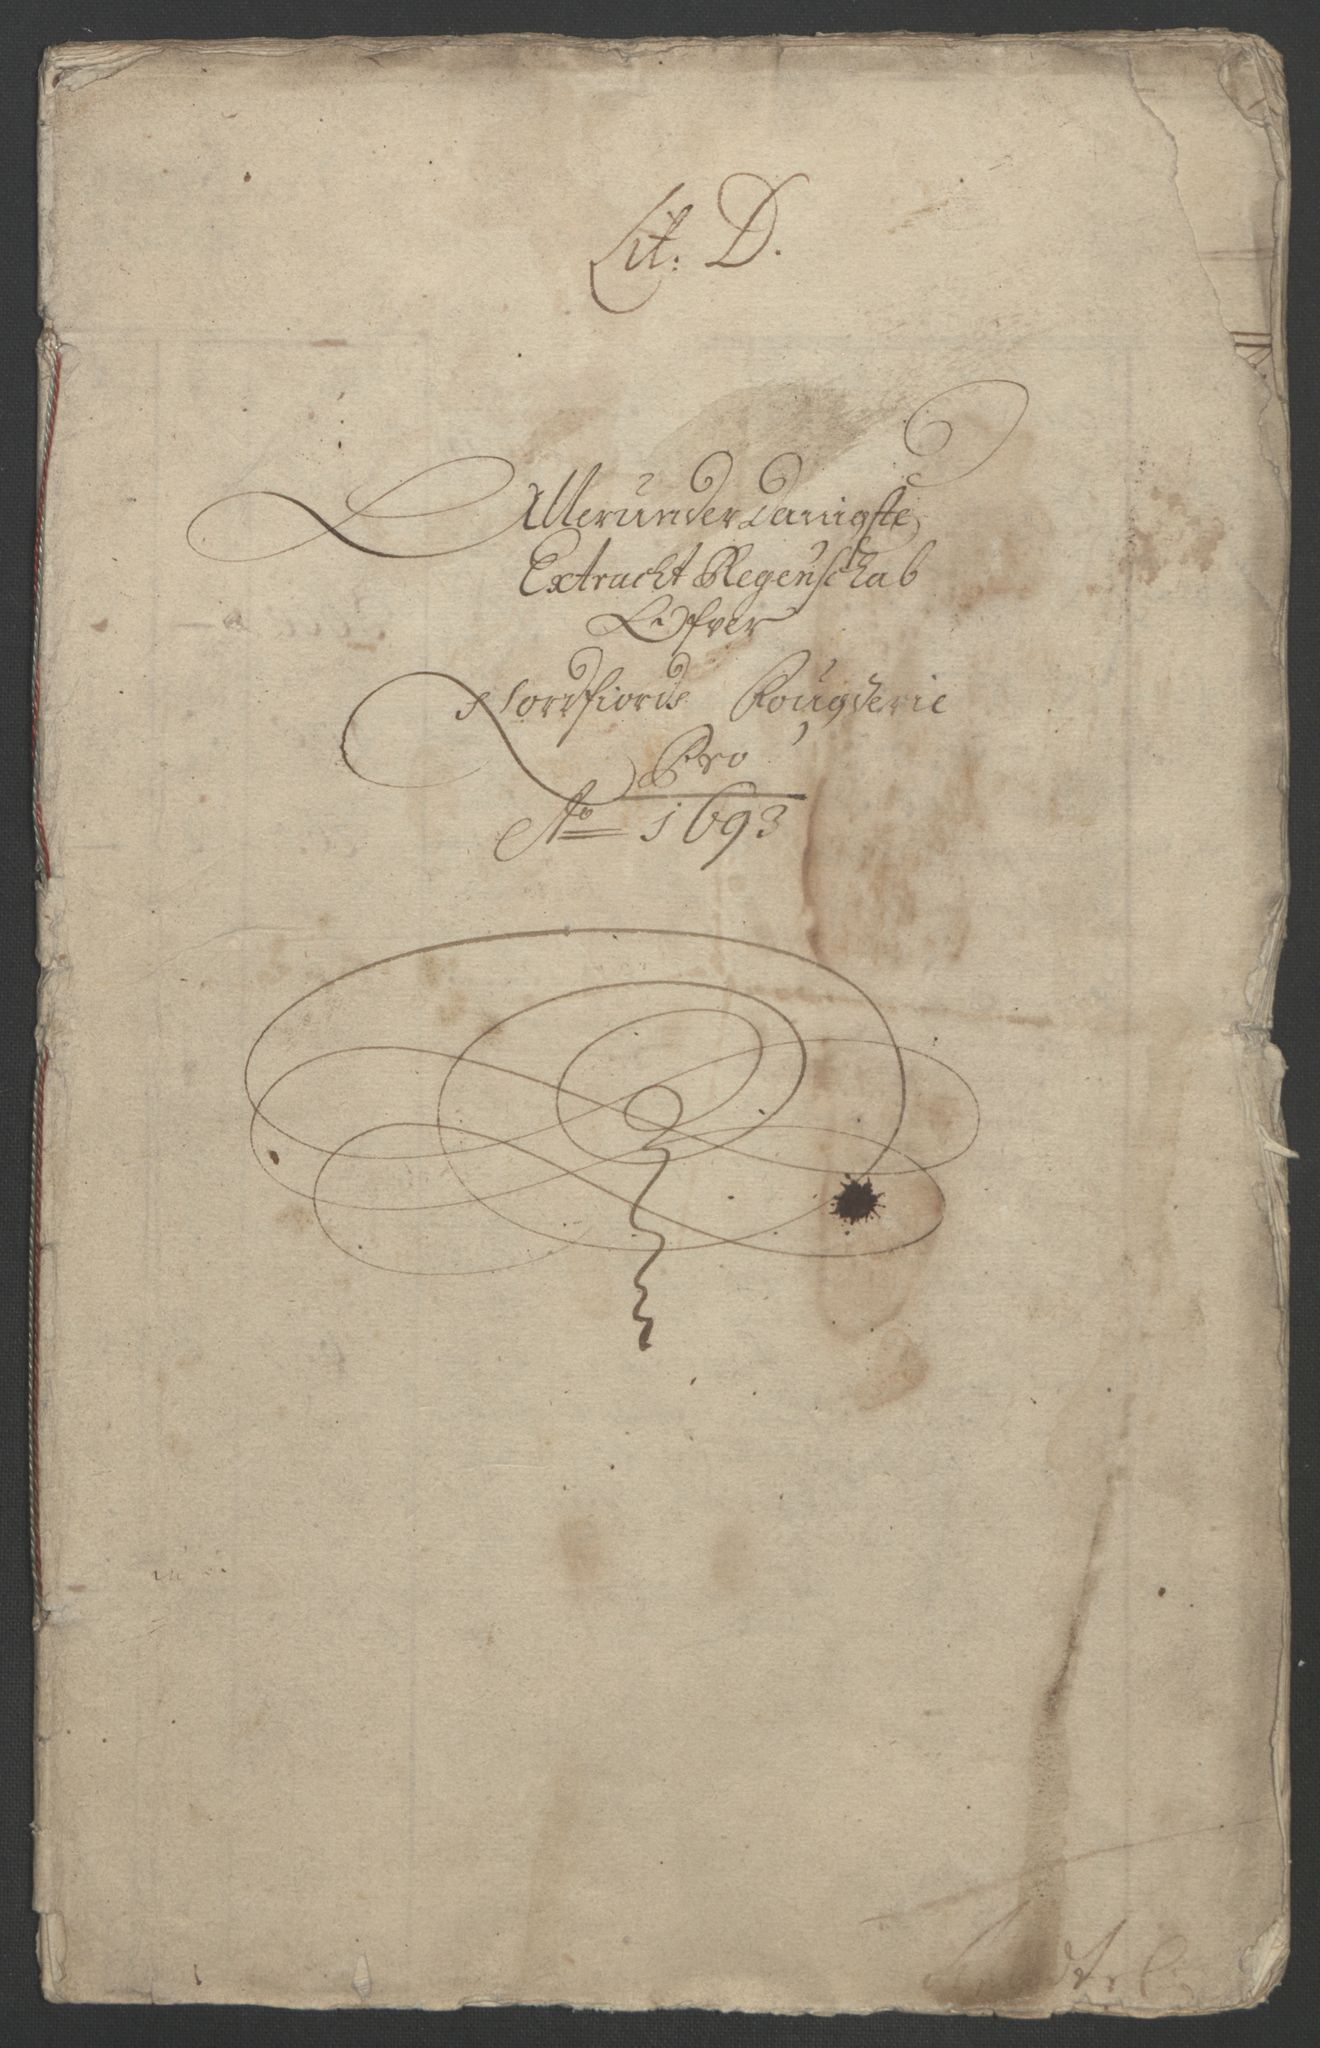 Lit: D.
Allerunderdanigste
Extracht Regenschab
Ofver
Nordfiords Fougderie
Pro
Ao 1693